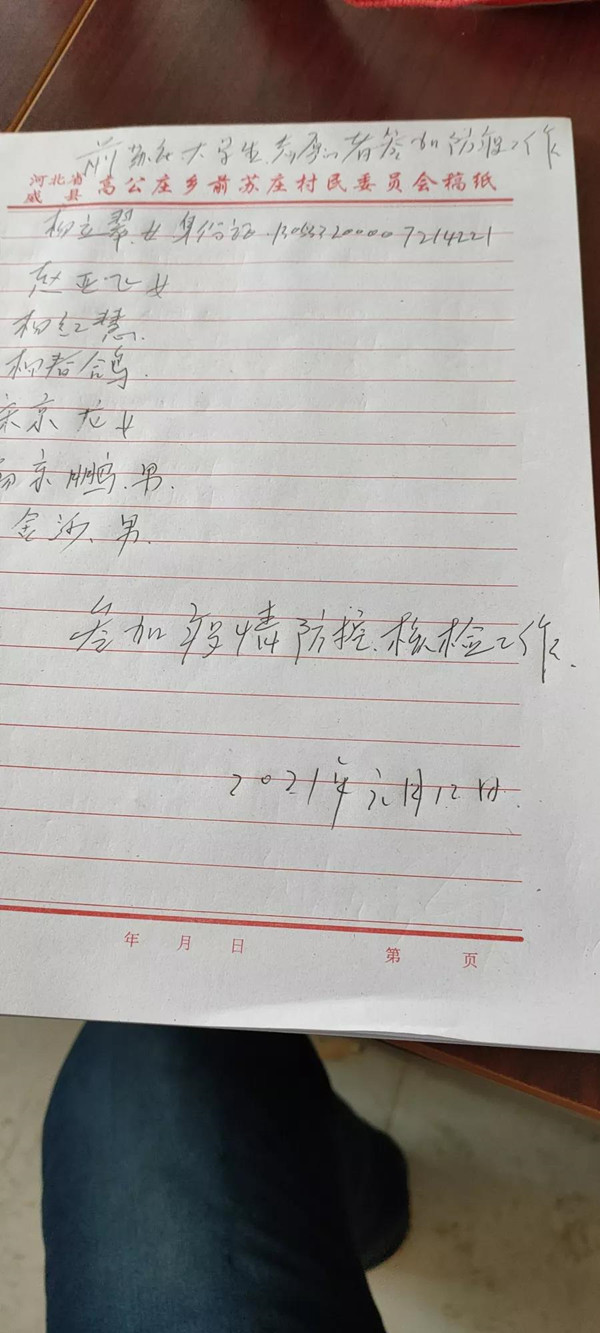 前苏庄大学生志愿者参加防疫工作
河北省
威 县 高公庄乡前苏庄村民委员会稿纸
柳立翠.女 身份证
赵亚飞女
柳红慧.
柳春鸽.
宋京龙女
京鹏.男.
金沙、男.
参加疫情防控.核检工作.
2021年元月12日.
年 月 日 第 页